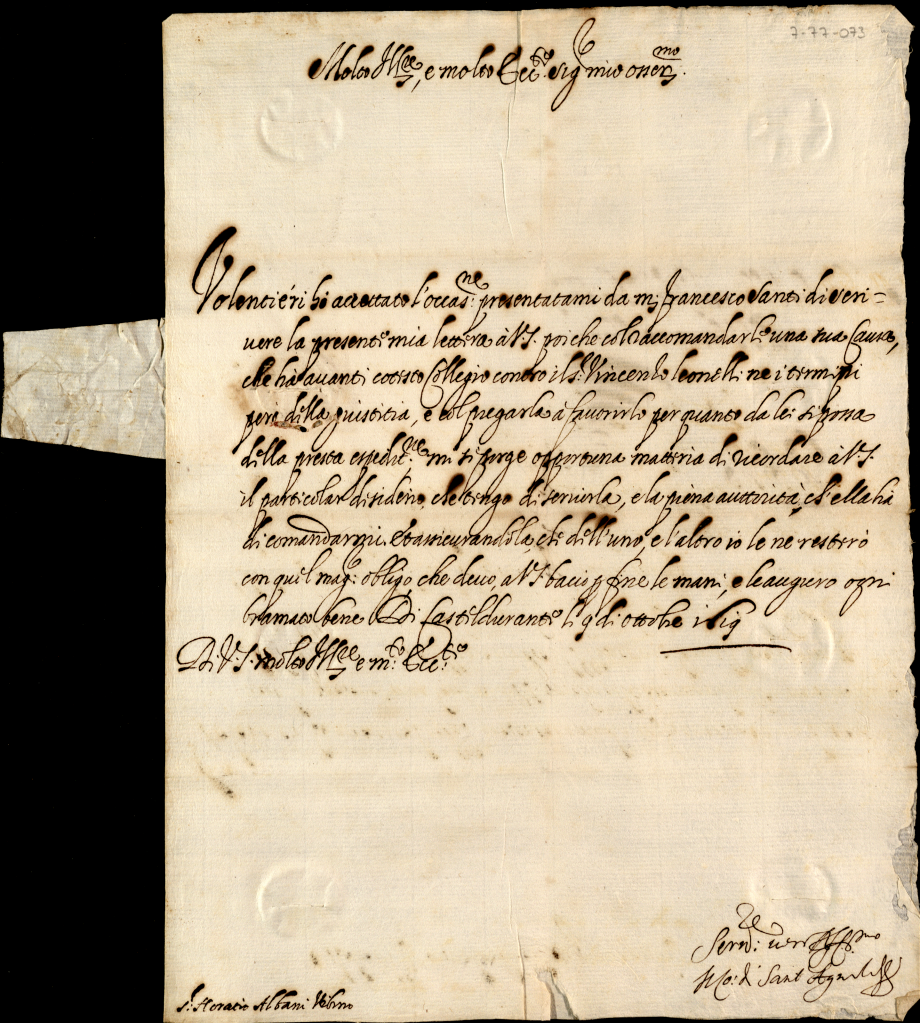 7-77-073
Molto Ill.re, e molto Ecc.te Sig.r mio osser.mo
Volentieri hò accettato l'occas.ne presentatami da m. Francesco Santi di scri-
vere la presente mia lettera à V.S. poiche col raccomandarle una sua Causa,
che hà avanti cotesto Collegio contro il S. Vincenzo Leonelli ne i termini
però della giustitia, e col pregarla à favorirlo per quanto da lei si possa
della presta espedit.ne mi si porge opportuna matteria di ricordare à V.S.
il particolar disiderio, che tengo di servirla, e la piena auttorità, ch'ella hà
di comandarmi. Et assicurandola, che dell'uno, e l'altro io le ne resterò
con quel mag.r obligo, che devo, a V.S. bacio p fine le mani, e le auguro ogni
bramato bene Di Casteldurante li 9 di ottobre
Di V.S. molto Ill.re e m.to Ecc.te
Ser.re
di Sant'
S. Horatio Albani Urbino